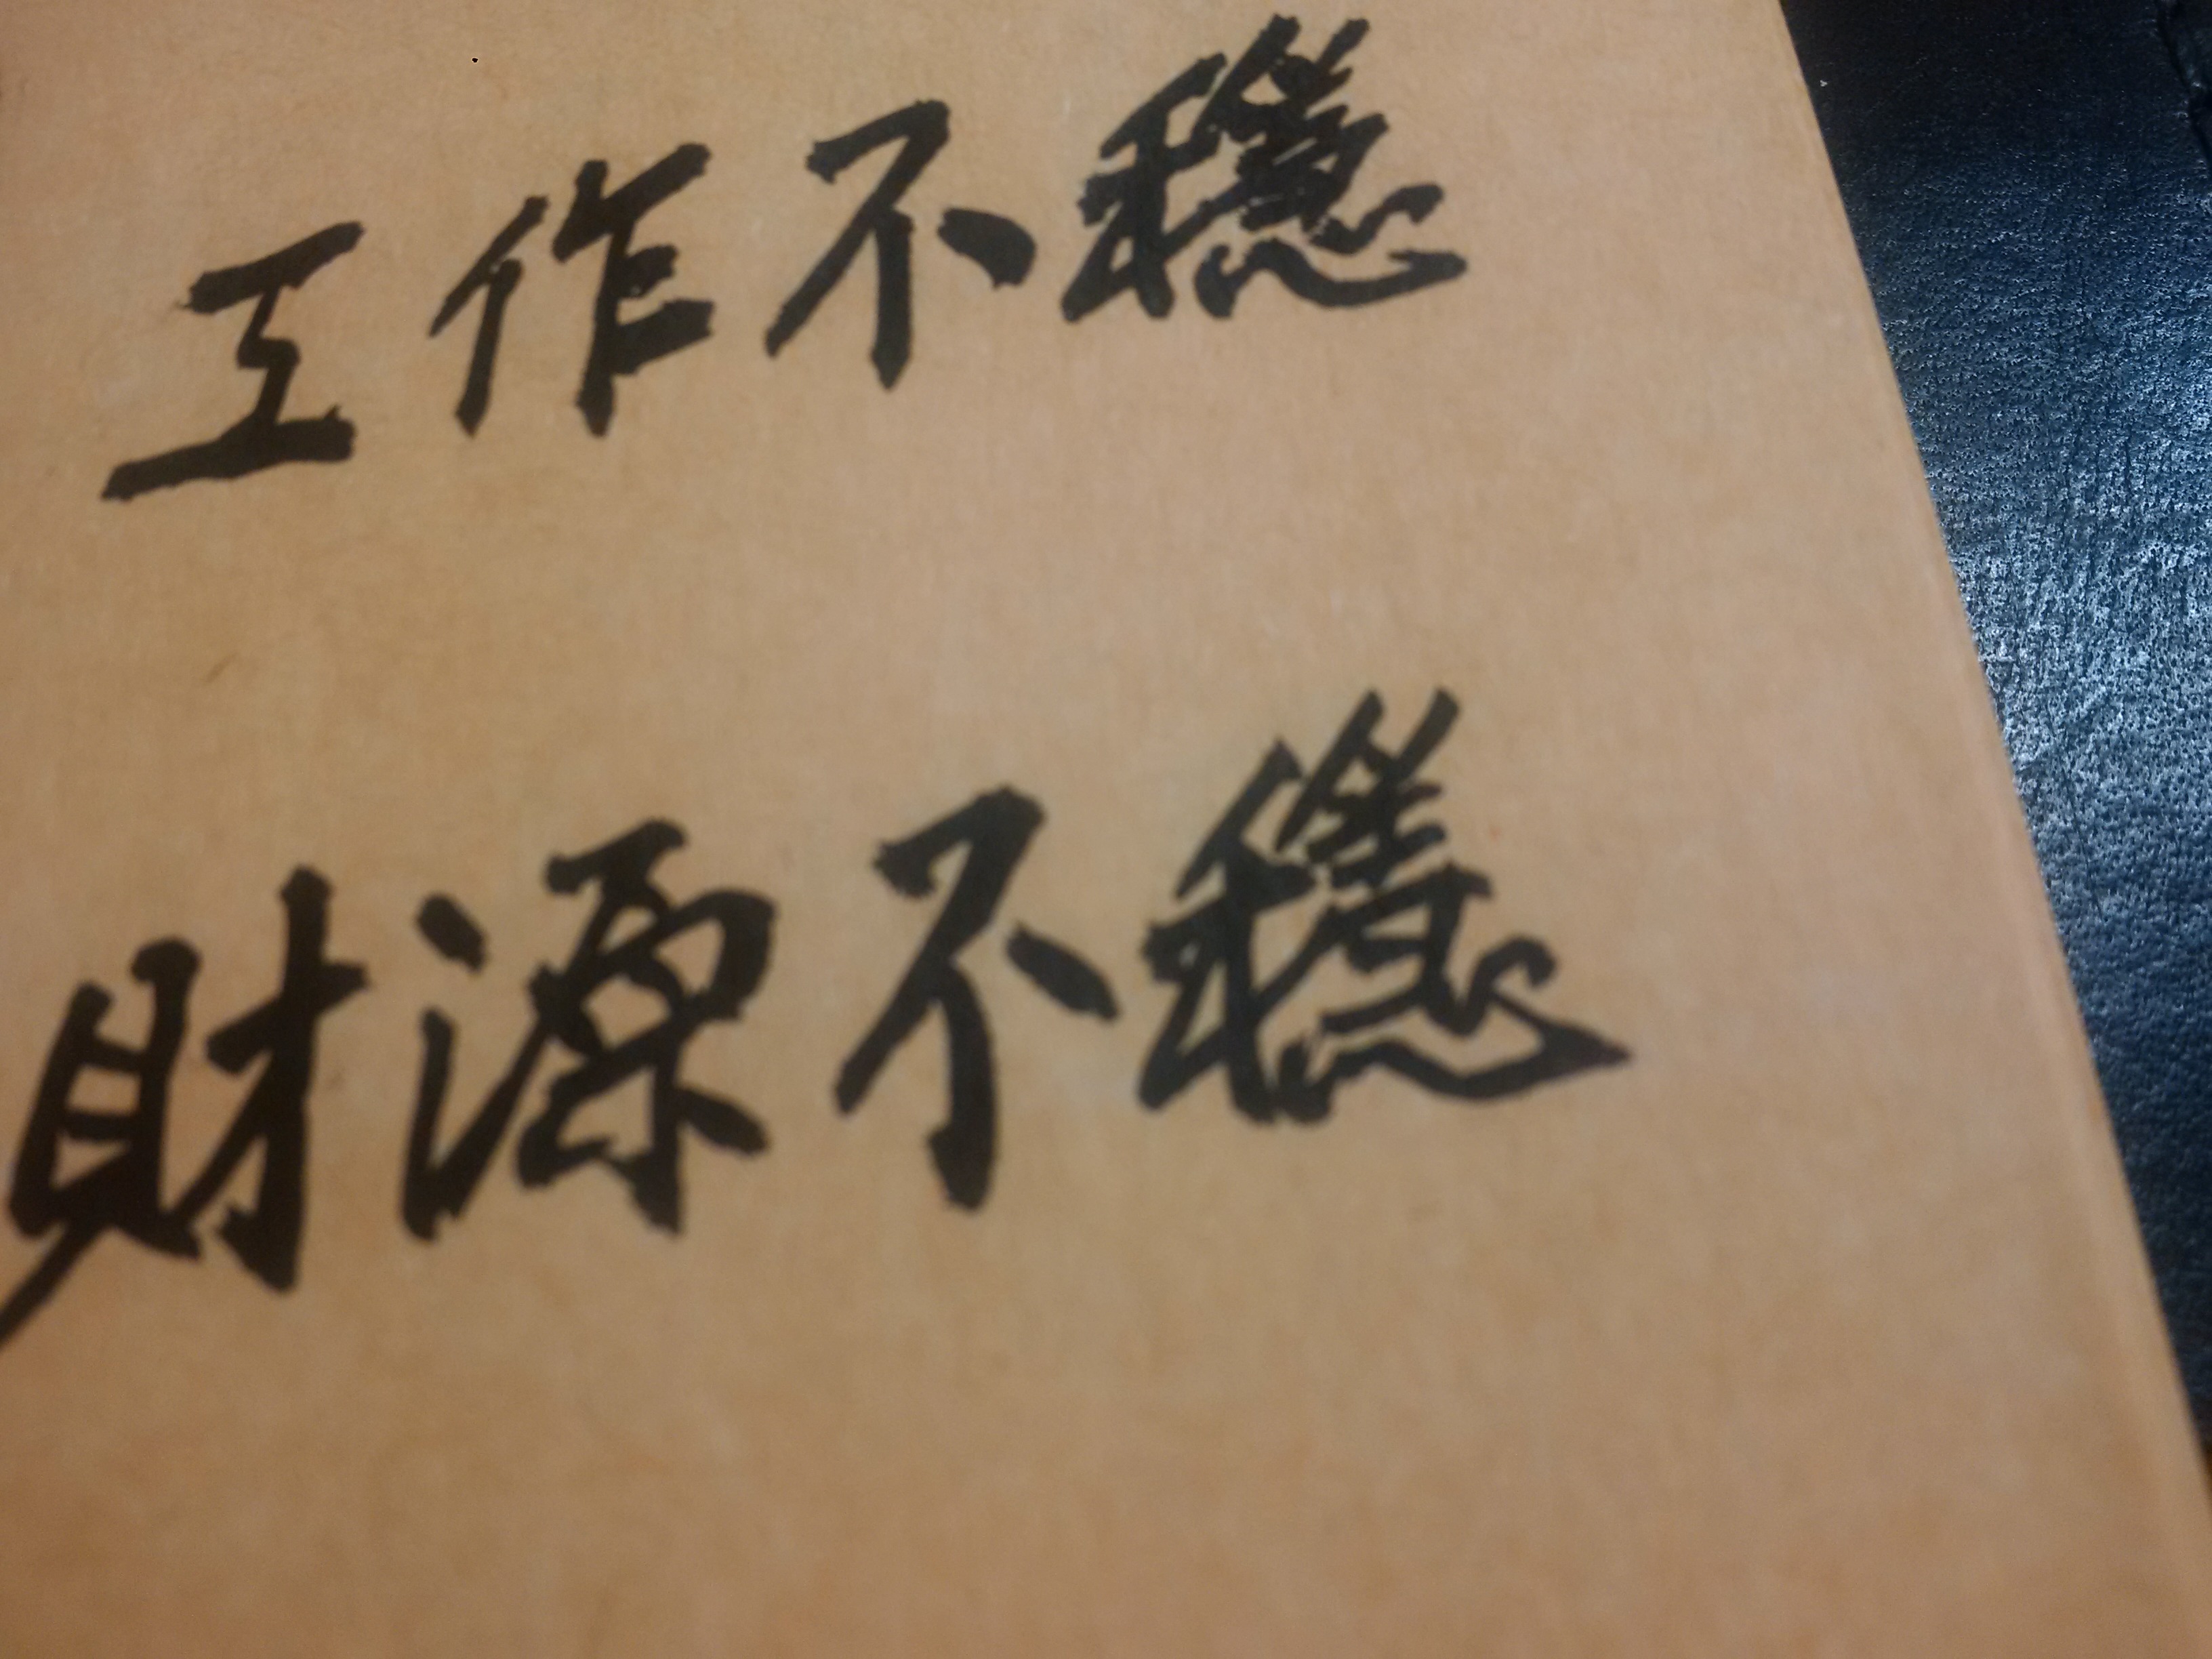 工作不穩
財源不穩